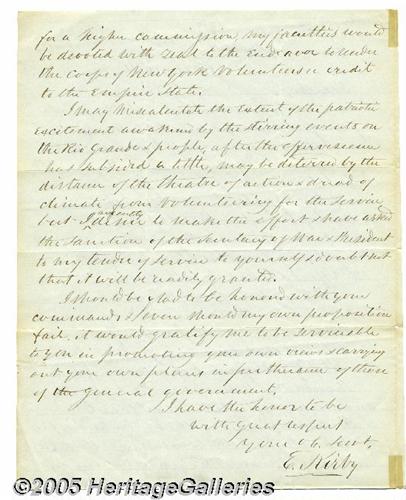 for a higher commission, my faculties would
be devoted with zeal to the endeavor to render
the corps of New York Volunteers a credit
to the Empire State.
I may miscalculate the extent of the patriotic
excitement awakened by the stirring events on
the Rio Grande & people, after the effervescence
has subsided a little, may be deterred by the
distance of the theatre of action & dread of
climate from volunteering for the service
but I ardently desire to make the effort & have asked
the sanction of the Secretary of War & President
to my tender of service to yourself & doubt not
that it will be readily granted.
I should be glad to be honored with your
commands & even should my own proposition
fail, it would gratify me to be serviceable
to you in promoting your own views & carrying
out your own plans in furtherance of those
of the general government.
I have the honor to be
with great respect
Your Ob. Servt.
E. Kirby
©2005 HeritageGalleries